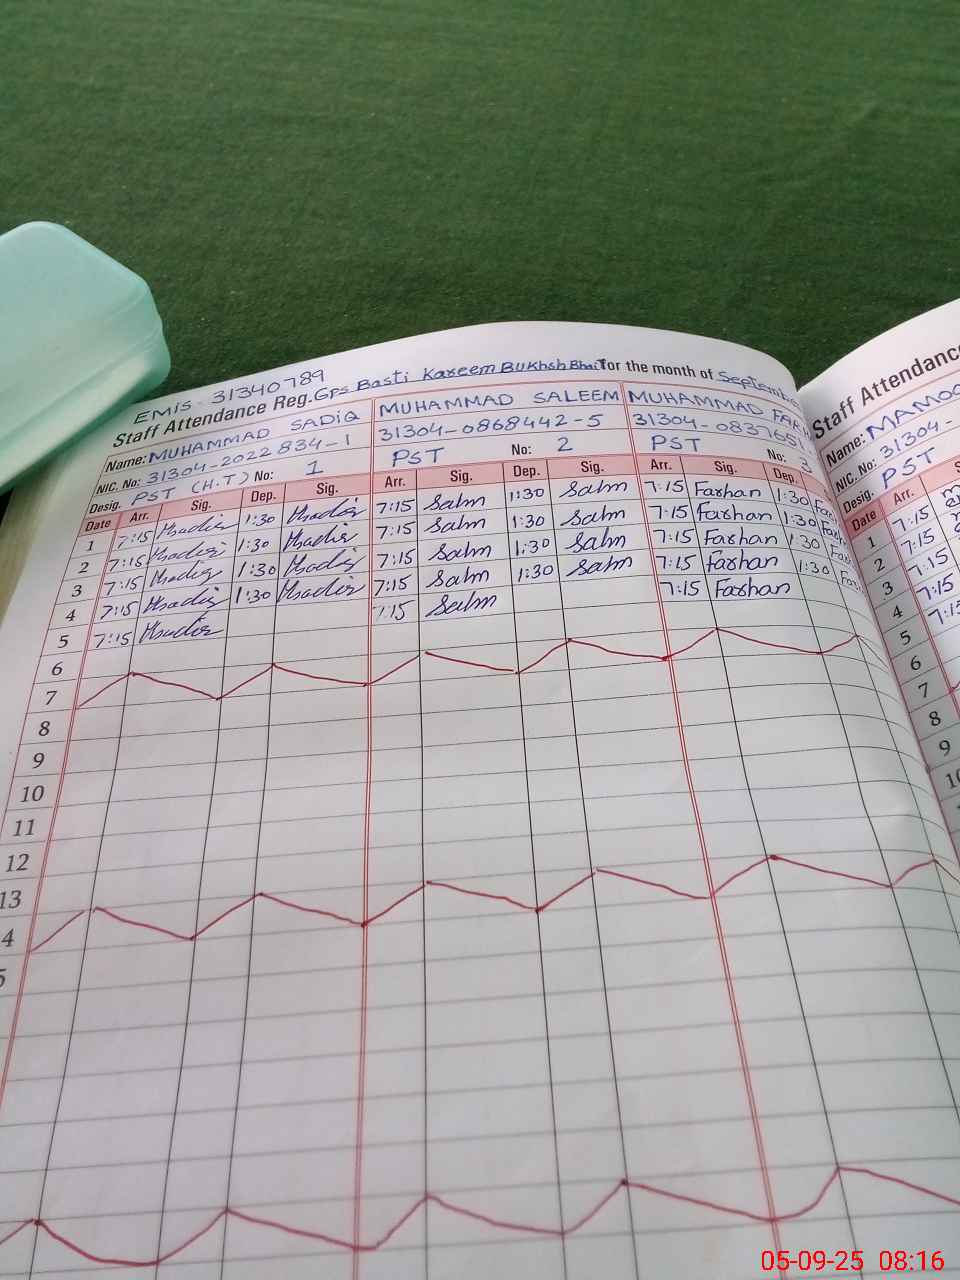 EMIS - 31340789
Staff Attendance Reg. Gps Basti Kareem Bukhsh Bhai For the month of September
Name: MUHAMMAD SADIQ MUHAMMAD SALEEM MUHAMMAD
NIC. No: 31304-2022834-1 31304-0868442-5 31304-083765
Desig. PST (H.T) No: 1 PST No: 2 PST No: 3
Date Arr. Sig. Dep. Sig. Arr. Sig. Dep. Sig. Arr. Sig. Dep.
1 7:15 1:30 7:15 Salm 1:30 Salm 7:15 Farhan 1:30
2 7:15 1:30 7:15 Salm 1:30 Salm 7:15 Farhan 1:30
3 7:15 1:30 7:15 Salm 1:30 Salm 7:15 Farhan 1:30
4 7:15 1:30 7:15 Salm 1:30 Salm 7:15 Farhan 1:30
5 7:15 7:15 Salm 7:15 Farhan
6
7
8
9
10
11
12
13
4
5
Staff Attendance
Name:
NIC. No: 31304-
Desig. PST
Date Arr.
1 7:15
2 7:15
3 7:15
4 7:15
5 7:15
6
7
8
9
10
05-09-25 08:16